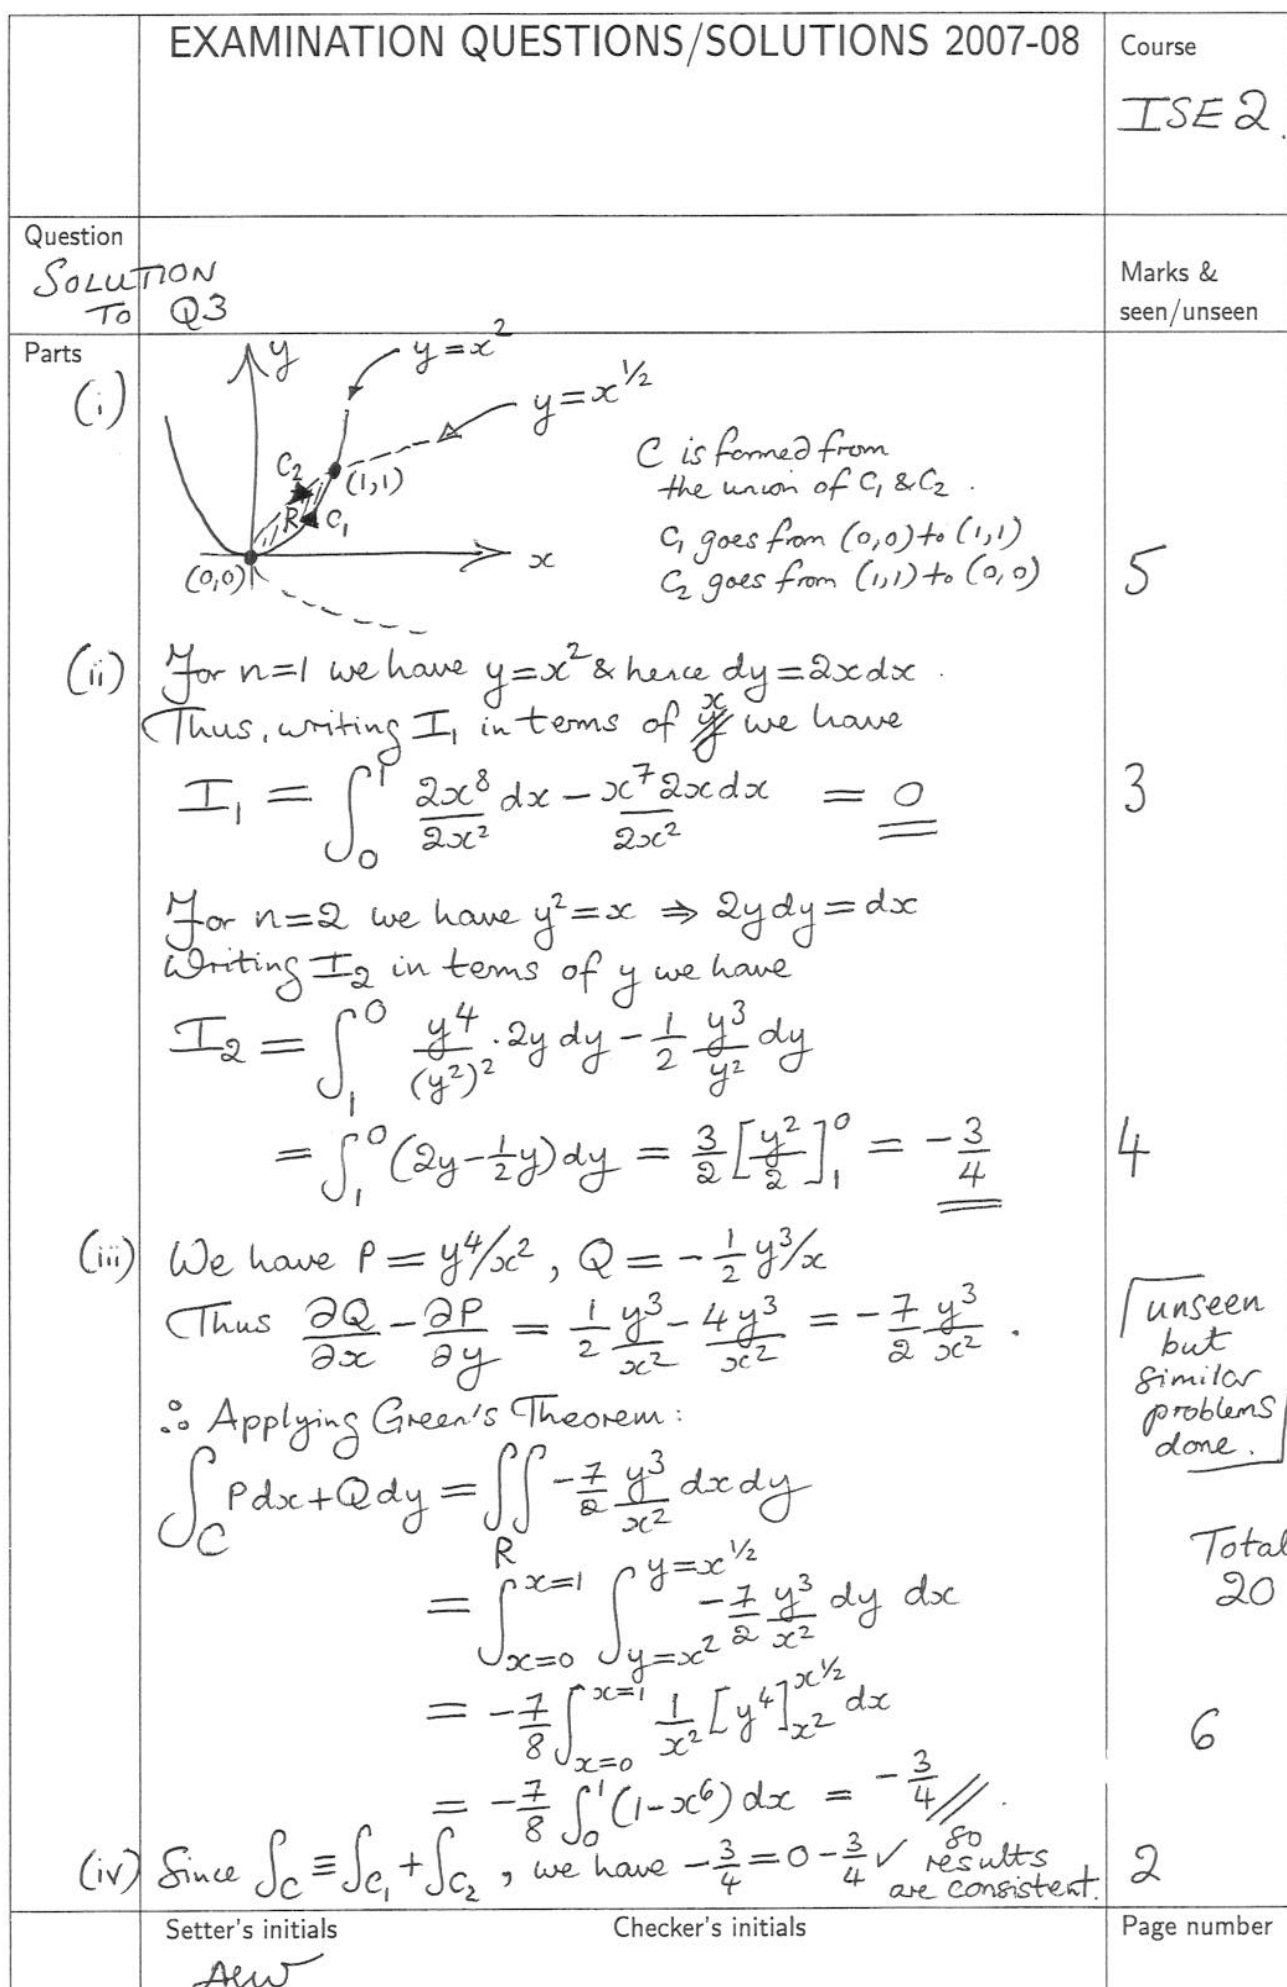 EXAMINATION QUESTIONS/SOLUTIONS 2007-08
Course
ISE 2.
Question
SOLUTION
TO Q3
Marks &
seen/unseen
Parts
(i)
y
y = x²
y = x^{1/2}
C₂
(1,1)
R
C₁
(0,0)
x
C is formed from
the union of C₁ & C₂.
C₁ goes from (0,0) to (1,1)
C₂ goes from (1,1) to (0,0)
5
(ii) For n=1 we have y=x² & hence dy=2xdx.
Thus, writing I₁ in terms of x we have
I₁ = ∫₀¹ 2x⁸/2x² dx - x⁷2xdx/2x² = 0
3
For n=2 we have y²=x ⇒ 2ydy=dx
Writing I₂ in terms of y we have
I₂ = ∫₁⁰ y⁴/(y²)² · 2y dy - 1/2 y³/y² dy
= ∫₁⁰ (2y - 1/2 y) dy = 3/2 [y²/2]₁⁰ = -3/4
4
(iii) We have P = y⁴/x², Q = -1/2 y³/x
Thus ∂Q/∂x - ∂P/∂y = 1/2 y³/x² - 4y³/x² = -7/2 y³/x².
unseen
but
similar
problems
done.
∴ Applying Green's Theorem:
∫_C Pdx+Qdy = ∬_R -7/2 y³/x² dx dy
Total
20
= ∫_{x=0}^{x=1} ∫_{y=x²}^{y=x^{1/2}} -7/2 y³/x² dy dx
= -7/8 ∫_{x=0}^{x=1} 1/x² [y⁴]_{x²}^{x^{1/2}} dx
6
= -7/8 ∫₀¹ (1-x⁶) dx = -3/4 //.
(iv) Since ∫_C ≡ ∫_{C₁} + ∫_{C₂}, we have -3/4 = 0 - 3/4 ✓ so
results
are consistent.
2
Setter's initials
Checker's initials
Page number